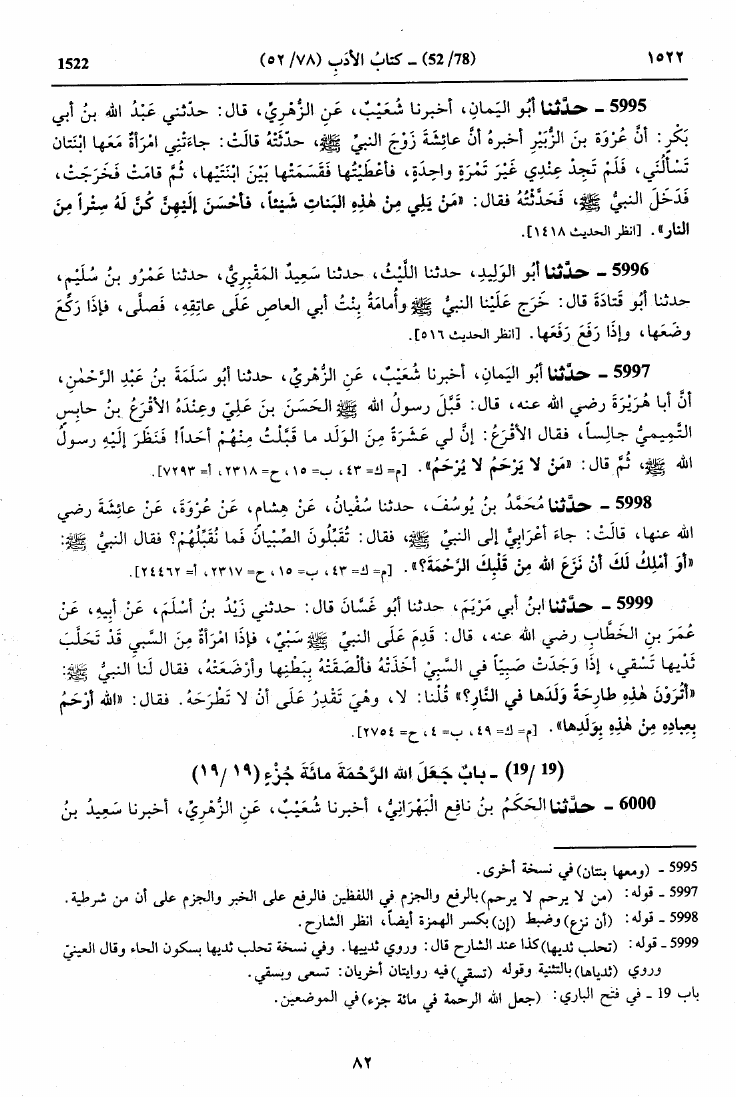 ١٥٢٢ (52/78) ـ كتابُ الأدَبِ (٥٢/٧٨) 1522
5995 ـ حدَّثنا أبُو اليَمانِ، أخبرنا شُعَيْبٌ، عَنِ الزُّهْرِيِّ، قال: حدّثني عَبْدُ الله بنُ أبي
بَكْرٍ: أنَّ عُرْوَةَ بنَ الزُّبَيْرِ أخبرهُ أنَّ عائِشَةَ زَوْجَ النبيِّ ﷺ، حدّثَتْهُ قالَتْ: جاءَتْنِي امْرَأةٌ مَعَها ابْنَتانِ
تَسْألُنِي، فَلَمْ تَجِدْ عِنْدِي غَيْرَ تَمْرَةٍ واحِدَةٍ، فأعْطَيْتُها فَقَسَمَتْها بَيْنَ ابْنَتَيْها، ثُمَّ قامَتْ فَخَرَجَتْ،
فَدَخَلَ النبيُّ ﷺ، فَحَدَّثْتُهُ فقال: «مَنْ يَلِي مِنْ هٰذِهِ البَناتِ شَيْئاً، فأحْسَنَ إلَيْهِنَّ كُنَّ لَهُ سِتْراً مِنَ
النار». [انظر الحديث ١٤١٨].
5996 ـ حدَّثنا أبُو الوَلِيدِ، حدثنا اللَّيْثُ، حدثنا سَعِيدٌ المَقْبِرِيُّ، حدثنا عَمْرُو بنُ سُلَيْم،
حدثنا أبُو قَتادَةَ قال: خَرَجَ عَلَيْنا النبيُّ ﷺ وأُمامَةُ بِنْتُ أبي العاصِ عَلَى عاتِقِهِ، فَصلَّى، فإذَا رَكَعَ
وضَعَها، وإذَا رَفَعَ رَفَعَها. [انظر الحديث ٥١٦].
5997 ـ حدَّثنا أبُو اليَمانِ، أخبرنا شُعَيْبٌ، عَنِ الزُّهْرِيِّ، حدثنا أبُو سَلَمَةَ بنُ عَبْدِ الرَّحْمٰنِ،
أنَّ أبا هُرَيْرَةَ رضي الله عنه، قال: قَبَّلَ رسولُ الله ﷺ الحَسَنَ بنَ عَلِيّ وعِنْدَهُ الأقْرَعُ بنُ حابِسٍ
التَّمِيمِيُّ جالِساً، فقال الأقْرَعُ: إنَّ لي عَشَرَةً مِنَ الوَلَدِ ما قَبَّلْتُ مِنْهُمْ أحَداً! فَنَظَرَ إلَيْهِ رسولُ
الله ﷺ، ثُمَّ قال: «مَنْ لا يَرْحَمُ لا يُرْحَمُ». [م= ك= ٤٣، ب= ١٥، ح= ٢٣١٨، أ= ٧٢٩٣].
5998 ـ حدَّثنا مُحَمَّدُ بنُ يُوسُفَ، حدثنا سُفْيانُ، عَنْ هِشامٍ، عَنْ عُرْوَةَ، عَنْ عائِشَةَ رضي
الله عنها، قالَتْ: جاءَ أعْرَابِيٌّ إلى النبيِّ ﷺ، فقال: تُقَبِّلُونَ الصِّبْيانَ فَما نُقَبِّلُهُمْ؟ فقال النبيُّ ﷺ:
«أوَ أمْلِكُ لَكَ أنْ نَزَعَ الله مِنْ قَلْبِكَ الرَّحْمَةَ؟». [م= ك= ٤٣، ب= ١٥، ح= ٢٣١٧، أ= ٢٤٤٦٢].
5999 ـ حدَّثنا ابنُ أبي مَرْيَمَ، حدثنا أبُو غَسَّانَ قال: حدثني زَيْدُ بنُ أسْلَمَ، عَنْ أبيهِ، عَنْ
عُمَرَ بنِ الخَطَّابِ رضي الله عنه، قال: قَدِمَ عَلَى النبيِّ ﷺ سَبْيٌ، فإذَا امْرَأةٌ مِنَ السَّبْيِ قَدْ تَحَلَّبَ
ثَدْيها تَسْقي، إذَا وَجَدَتْ صَبِيًّا في السَّبْيِ أخَذَتْهُ فألْصَقَتْهُ بِبَطْنِها وأرْضَعَتْهُ، فقال لَنا النبيُّ ﷺ:
«أتُرَوْنَ هٰذِهِ طارِحَةً وَلَدَها في النَّارِ؟» قُلْنا: لا، وهْيَ تَقْدِرُ عَلَى أنْ لا تَطْرَحَهُ. فقال: «الله أرْحَمُ
بِعِبادِهِ مِنْ هٰذِهِ بِوَلَدِها». [م= ك= ٤٩، ب= ٤، ح= ٢٧٥٤].
(19/19) ـ بابٌ جَعَلَ الله الرَّحْمَةَ مائَةَ جُزْءٍ (١٩/١٩)
6000 ـ حدَّثنا الحَكَمُ بنُ نافِعٍ الْبَهْرَانِيُّ، أخبرنا شُعَيْبٌ، عَنِ الزُّهْرِيِّ، أخبرنا سَعِيدُ بنُ
5995 ـ (ومعها بنتان) في نسخة أخرى.
5997 ـ قوله: (من لا يرحم لا يرحم) بالرفع والجزم في اللفظين فالرفع على الخبر والجزم على أن من شرطية.
5998 ـ قوله: (أن نزع) وضبط (إن) بكسر الهمزة أيضاً، انظر الشارح.
5999 ـ قوله: (تحلب ثديها) كذا عند الشارح قال: وروي ثدييها. وفي نسخة تحلب ثديها بسكون الحاء وقال العينيّ
وروي (ثدياها) بالتثنية وقوله (تسقي) فيه روايتان أخريان: تسعى وبسقي.
باب 19 ـ في فتح الباري: (جعل الله الرحمة في مائة جزء) في الموضعين.
٨٢